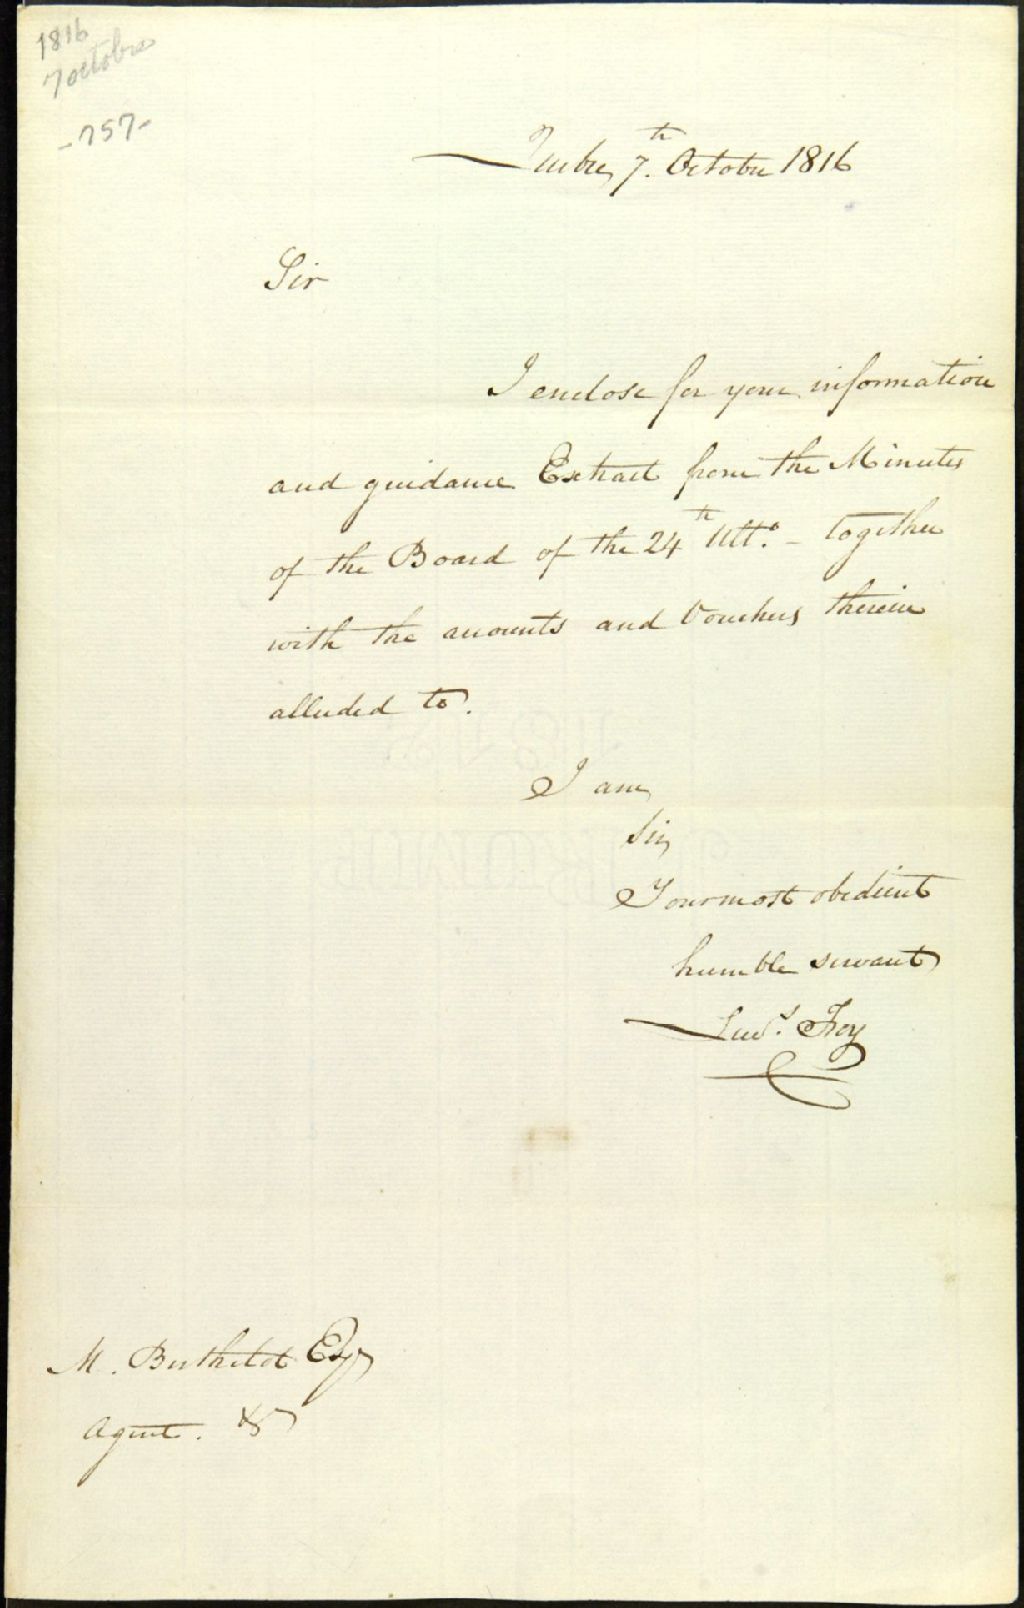 1816
7 octobre
-757-
Quebec 7th. October 1816
Sir
I enclose for your information
and guidance Extract from the Minutes
of the Board of the 24th Ulto. - together
with the accounts and Vouchers therein
alluded to.
I am
Sir,
Your most obedient
humble servant
Lews. Foy
M. Berthelot Esqr
Agent. &c